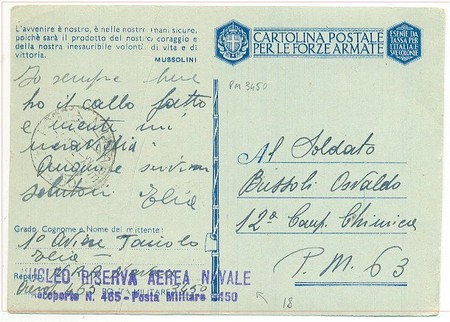 L'avvenire è nostro, è nelle nostre mani sicure,
poichè sarà il prodotto del nostro coraggio e
della nostra inesauribile volontà di vita e di
vittoria.
MUSSOLINI
Io sempre bene
ho il callo fatto
e niente mi
meraviglia
saluton Elia
Grado, Cognome e Nome del mittente:
1° Aviere
Elia
Reparto
POSTA MILITARE 3450
NUCLEO RISERVA AEREA NAVALE
Aeroporto N. 465 - Posta Militare 3450
CARTOLINA POSTALE
PER LE FORZE ARMATE
È ESENTE DA
TASSA PER
L'ITALIA E
SUE COLONIE
PM 3450
Al Soldato
Bussoli Osvaldo
12ª Comp. Chimica
P. M. 63
18